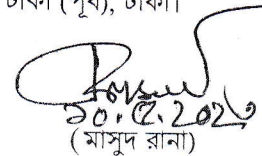 ঢাকা (পূর্ব), ঢাকা।
১০.৫.২০২৩
(মাসুদ রানা)